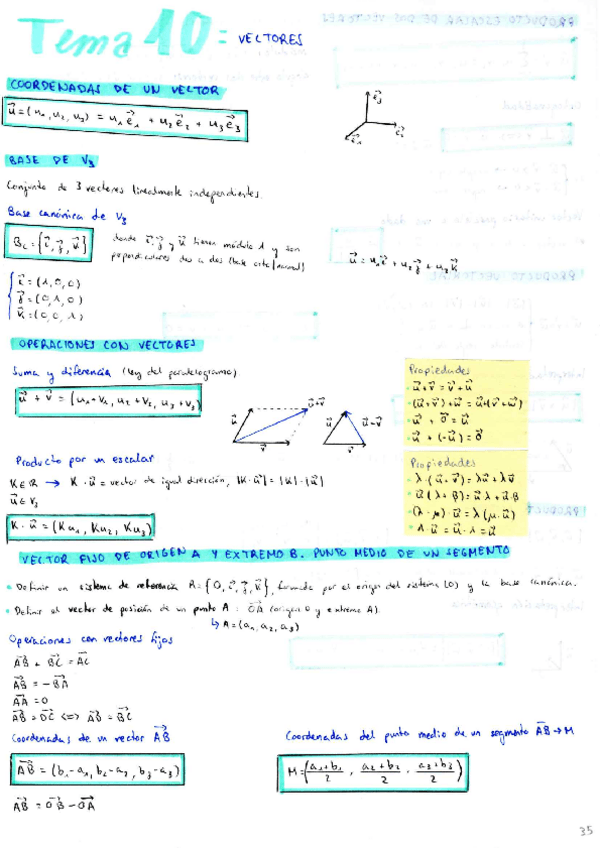 Tema 10: VECTORES
COORDENADAS DE UN VECTOR
u⃗ = (u₁, u₂, u₃) = u₁e⃗₁ + u₂e⃗₂ + u₃e⃗₃
e⃗₃
e⃗₁
e⃗₂
BASE DE V₃
Conjunto de 3 vectores linealmente independientes.
Base canónica de V₃
Bc = {i⃗, j⃗, k⃗} donde i⃗, j⃗ y k⃗ tienen módulo 1 y son
perpendiculares dos a dos (base ortonormal)
u⃗ = u₁i⃗ + u₂j⃗ + u₃k⃗
i⃗ = (1, 0, 0)
j⃗ = (0, 1, 0)
k⃗ = (0, 0, 1)
OPERACIONES CON VECTORES
Suma y diferencia (ley del paralelogramo)
u⃗ + v⃗ = (u₁+v₁, u₂+v₂, u₃+v₃)
u⃗
v⃗
u⃗+v⃗
u⃗
v⃗
u⃗-v⃗
Propiedades
· u⃗+v⃗ = v⃗+u⃗
· (u⃗+v⃗)+w⃗ = u⃗+(v⃗+w⃗)
· u⃗ + 0⃗ = u⃗
· u⃗ + (-u⃗) = 0⃗
Producto por un escalar
K∈ℝ → K · u⃗ = vector de igual dirección, |K·u⃗| = |K|·|u⃗|
u⃗∈V₃
K · u⃗ = (Ku₁, Ku₂, Ku₃)
Propiedades
· λ·(u⃗+v⃗) = λu⃗+λv⃗
· u⃗(λ+β) = u⃗λ + u⃗·β
· (λ·μ)·u⃗ = λ(μ·u⃗)
· 1·u⃗ = u⃗·1 = u⃗
VECTOR FIJO DE ORIGEN A Y EXTREMO B. PUNTO MEDIO DE UN SEGMENTO
• Definir un sistema de referencia R = {0, i⃗, j⃗, k⃗}, formada por el origen del sistema (0) y la base canónica.
• Definir el vector de posición de un punto A : OA⃗ (origen 0 y extremo A).
↳ A = (a₁, a₂, a₃)
Operaciones con vectores fijos
AB⃗ + BC⃗ = AC⃗
AB⃗ = -BA⃗
AA⃗ = 0
AB⃗ = DC⃗ <=> AD⃗ = BC⃗
Coordenadas de un vector AB⃗
AB⃗ = (b₁-a₁, b₂-a₂, b₃-a₃)
AB⃗ = OB⃗ - OA⃗
Coordenadas del punto medio de un segmento AB⃗ → M
M = (a₁+b₁/2, a₂+b₂/2, a₃+b₃/2)
35